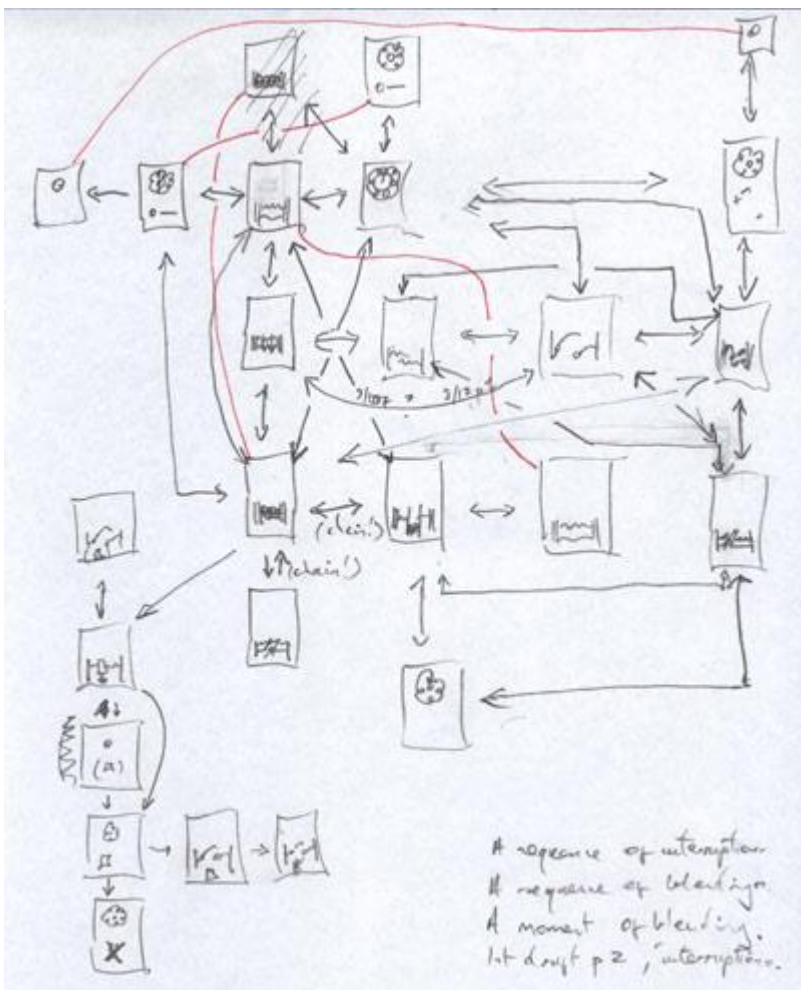 (chain!)
(chain!)
A sequence of interruption
A sequence of blendings
A moment of blending.
1st draft p 2, interruptions.